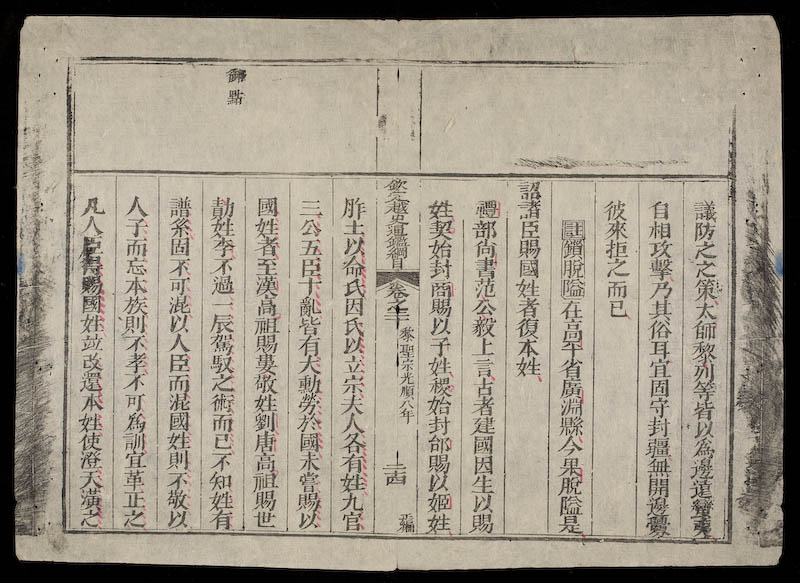 議防之之策太師黎列等皆以為邊遠蠻夷
自相攻擊乃其俗耳宜固守封疆無開邊釁
彼來拒之而已
註鎖脫隘在高平省廣淵縣今果脫隘是
詔諸臣賜國姓者復本姓
禮部尚書范公毅上言古者建國因生以賜
姓契始封商賜以子姓稷始封邰賜以姬姓
欽定越史通鑑綱目 卷之二十 黎聖宗光順八年 二十四 正編
胙土以命氏因氏以立宗夫人各有姓九官
三公五臣十亂皆有大勳勞於國未嘗賜以
國姓者至漢高祖賜婁敬姓劉唐高祖賜世
勣姓李不過一辰駕馭之術而已不知姓有
譜系固不可混以人臣而混國姓則不敬以
人子而忘本族則不孝不可為訓宜革正之
御點
凡人臣得賜國姓竝改還本姓使澄天潢之